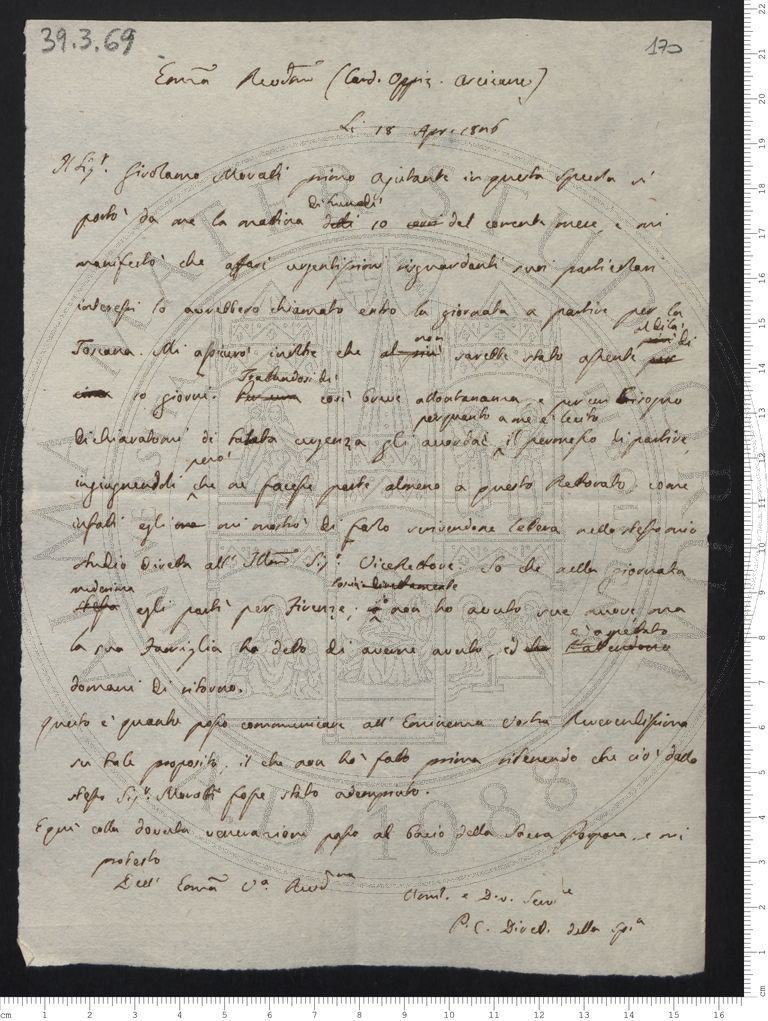 39.3.69
170
Em̃a Revd̃mo (Card. Oppiz. Arcivesc)
Li 18 Apr. 1846
Il Sigr. Girolamo Morali primo ajutante in questa Specola si
di lunedì
portò da me la mattina del 10 del corrente mese, e mi
manifestò che affari urgentissimi risguardanti suoi particolari
interessi lo avrebbero chiamato entro la giornata a partire per la
non al di là
Toscana. Mi assicurò inoltre che al più sarebbe stato assente di
Trattandosi di
10 giorni. così breve allontananza, e per un bisogno
per quanto a me è lecito
dichiaratomi di tutta urgenza gli accordai il permesso di partire,
però
ingiugnendoli che ne facesse parte almeno a questo Rettorato, come
infatti egli mi mostrò di farlo scrivendone lettera nello stesso mio
studio diretta all' Illmo Sigr. ViceRettore. So che nella giornata
medesima
stessa egli partì per Firenze; non ho avuto sue nuove ma
ed aspettato
la sua famiglia ha detto di averne avuto, ed
domani di ritorno.
Questo è quanto posso communicare all' Eminenza Vostra Reverendissima
su tale proposito, il che non hò fatto prima ritenendo che ciò dallo
stesso Sigr. Morali fosse stato adempiuto.
E quì colla dovuta venerazione passo al bacio della Sacra Porpora, e mi
protesto
Dell' Em̃a Va Revd̃ma
Uml. e Dev. Servle
P. C. Dirett. della Spla